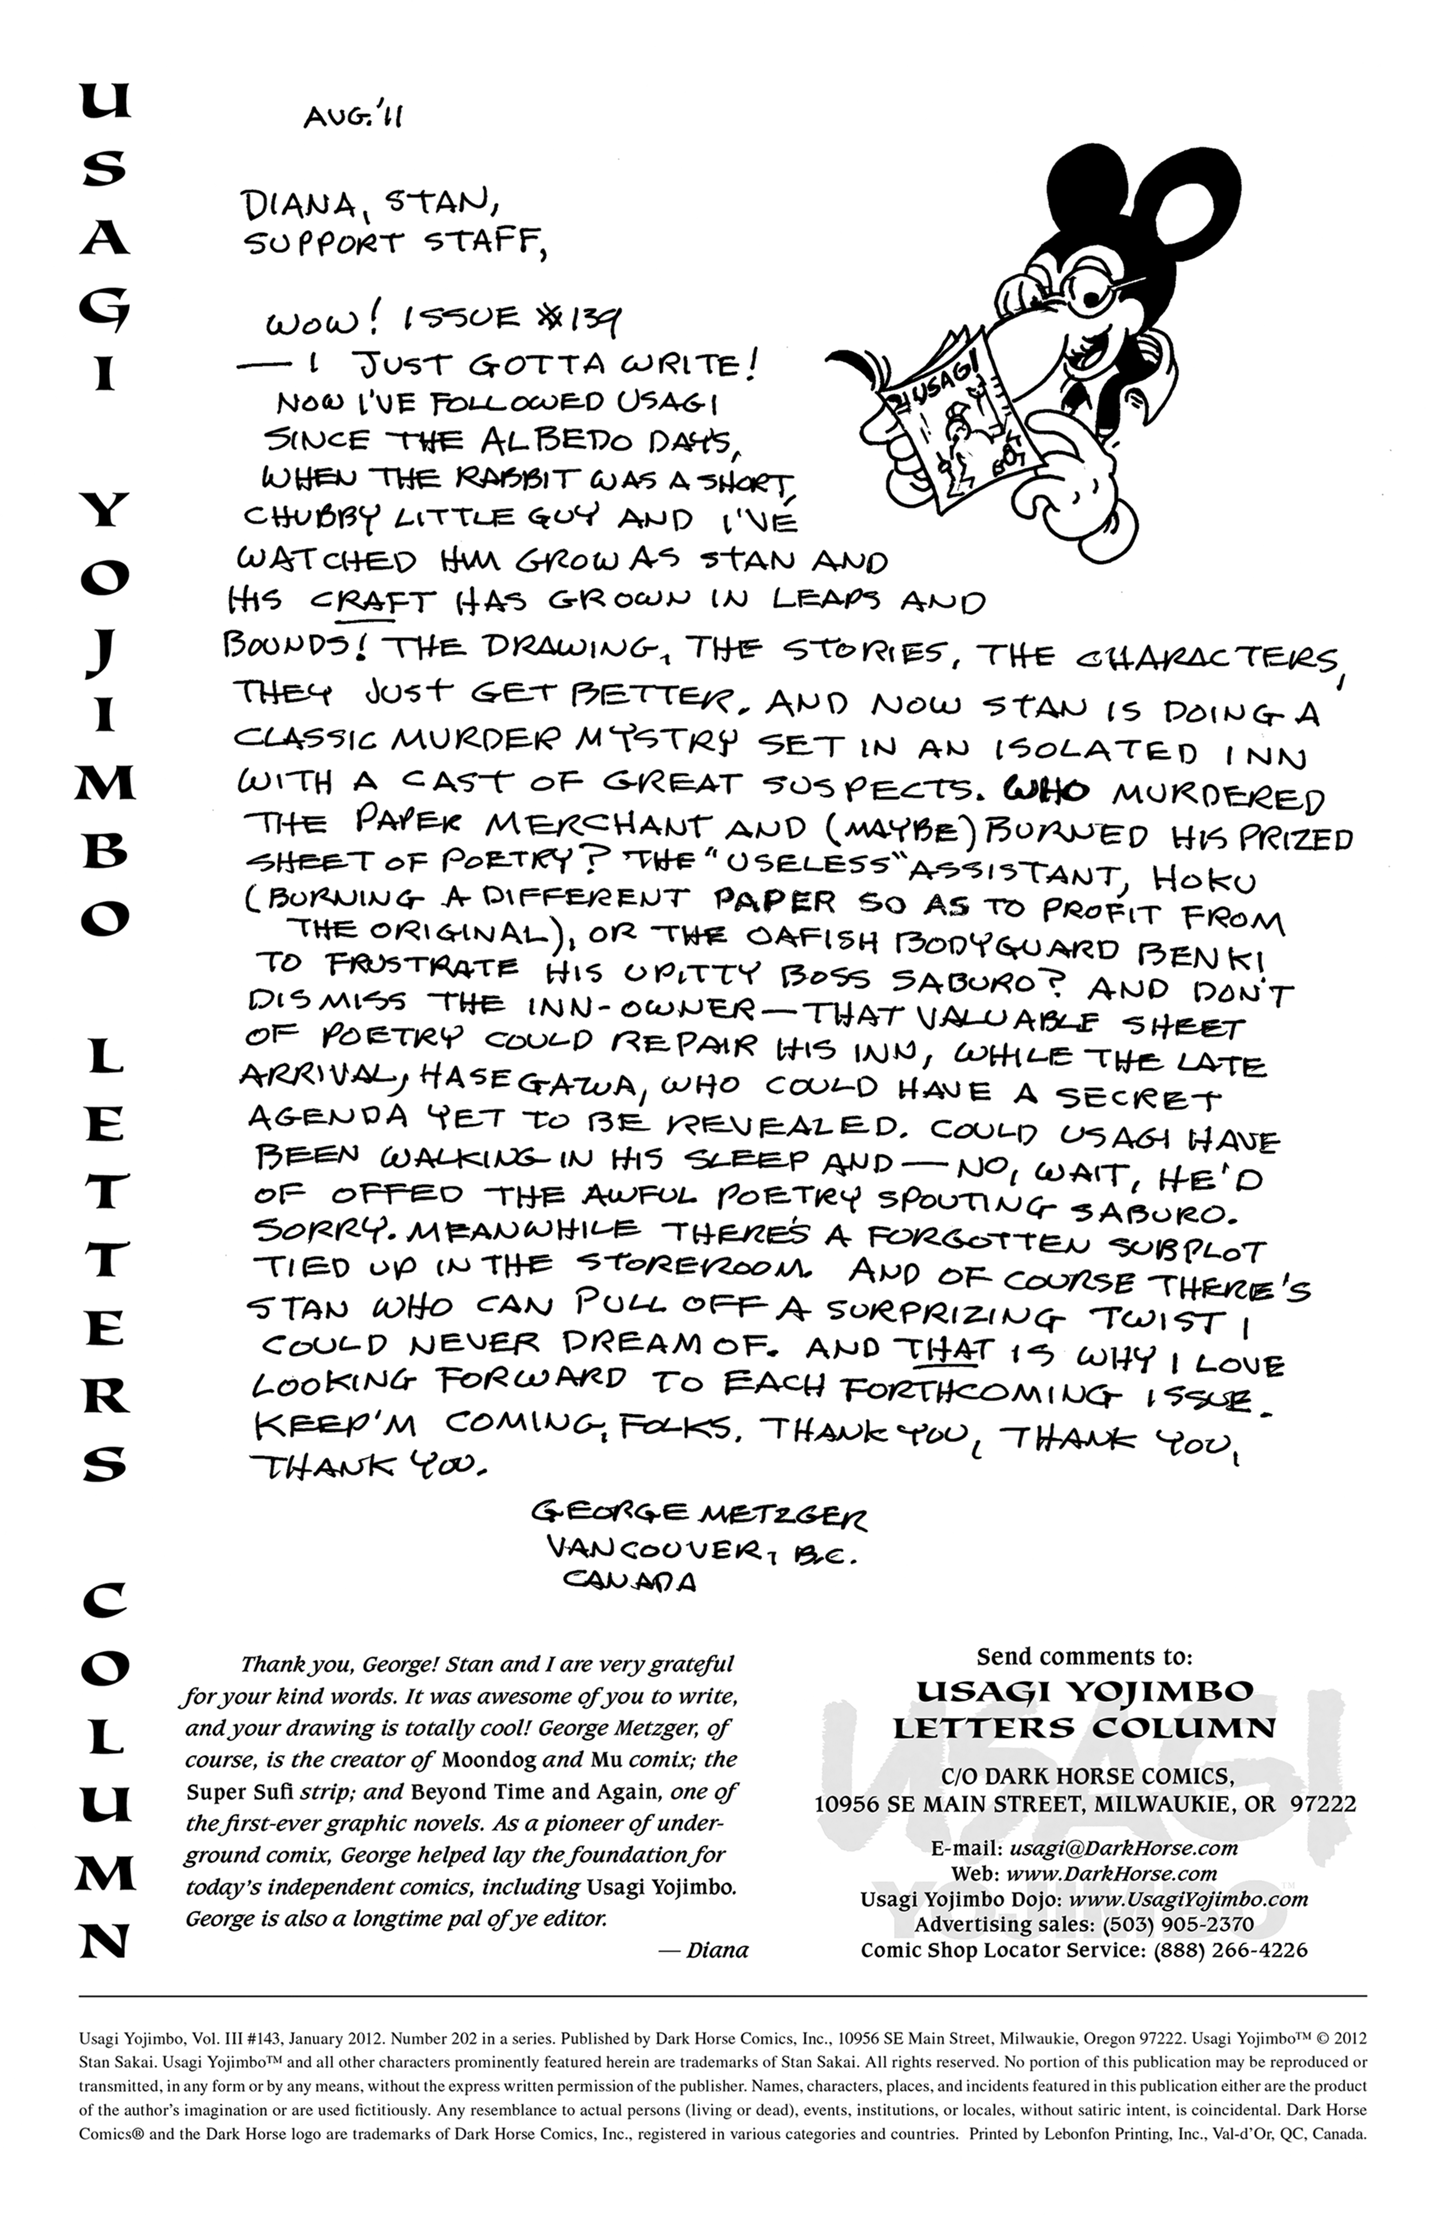 USAGI YOJIMBO LETTERS COLUMN
AUG.'11
DIANA, STAN,
SUPPORT STAFF,
WOW! ISSUE #139
— I JUST GOTTA WRITE!
NOW I'VE FOLLOWED USAGI
SINCE THE ALBEDO DAYS,
WHEN THE RABBIT WAS A SHORT,
CHUBBY LITTLE GUY AND I'VE
WATCHED HIM GROW AS STAN AND
HIS CRAFT HAS GROWN IN LEAPS AND
BOUNDS! THE DRAWING, THE STORIES, THE CHARACTERS,
THEY JUST GET BETTER. AND NOW STAN IS DOING A
CLASSIC MURDER MYSTRY SET IN AN ISOLATED INN
WITH A CAST OF GREAT SUSPECTS. WHO MURDERED
THE PAPER MERCHANT AND (MAYBE) BURNED HIS PRIZED
SHEET OF POETRY? THE "USELESS" ASSISTANT, HOKU
(BURNING A DIFFERENT PAPER SO AS TO PROFIT FROM
THE ORIGINAL), OR THE OAFISH BODYGUARD BENKI
TO FRUSTRATE HIS UPITTY BOSS SABURO? AND DON'T
DISMISS THE INN-OWNER—THAT VALUABLE SHEET
OF POETRY COULD REPAIR HIS INN, WHILE THE LATE
ARRIVAL, HASEGAWA, WHO COULD HAVE A SECRET
AGENDA YET TO BE REVEALED. COULD USAGI HAVE
BEEN WALKING IN HIS SLEEP AND — NO, WAIT, HE'D
OF OFFED THE AWFUL POETRY SPOUTING SABURO.
SORRY. MEANWHILE THERE'S A FORGOTTEN SUBPLOT
TIED UP IN THE STOREROOM. AND OF COURSE THERE'S
STAN WHO CAN PULL OFF A SURPRIZING TWIST I
COULD NEVER DREAM OF. AND THAT IS WHY I LOVE
LOOKING FORWARD TO EACH FORTHCOMING ISSUE.
KEEP'M COMING, FOLKS. THANK YOU, THANK YOU,
THANK YOU.
GEORGE METZGER
VANCOUVER, B.C.
CANADA
USAGI
Thank you, George! Stan and I are very grateful
for your kind words. It was awesome of you to write,
and your drawing is totally cool! George Metzger, of
course, is the creator of Moondog and Mu comix; the
Super Sufi strip; and Beyond Time and Again, one of
the first-ever graphic novels. As a pioneer of under-
ground comix, George helped lay the foundation for
today's independent comics, including Usagi Yojimbo.
George is also a longtime pal of ye editor.
— Diana
Send comments to:
USAGI YOJIMBO
LETTERS COLUMN
C/O DARK HORSE COMICS,
10956 SE MAIN STREET, MILWAUKIE, OR 97222
E-mail: usagi@DarkHorse.com
Web: www.DarkHorse.com
Usagi Yojimbo Dojo: www.UsagiYojimbo.com
Advertising sales: (503) 905-2370
Comic Shop Locator Service: (888) 266-4226
USAGI
YOJIMBO™
Usagi Yojimbo, Vol. III #143, January 2012. Number 202 in a series. Published by Dark Horse Comics, Inc., 10956 SE Main Street, Milwaukie, Oregon 97222. Usagi Yojimbo™ © 2012
Stan Sakai. Usagi Yojimbo™ and all other characters prominently featured herein are trademarks of Stan Sakai. All rights reserved. No portion of this publication may be reproduced or
transmitted, in any form or by any means, without the express written permission of the publisher. Names, characters, places, and incidents featured in this publication either are the product
of the author's imagination or are used fictitiously. Any resemblance to actual persons (living or dead), events, institutions, or locales, without satiric intent, is coincidental. Dark Horse
Comics® and the Dark Horse logo are trademarks of Dark Horse Comics, Inc., registered in various categories and countries. Printed by Lebonfon Printing, Inc., Val-d'Or, QC, Canada.